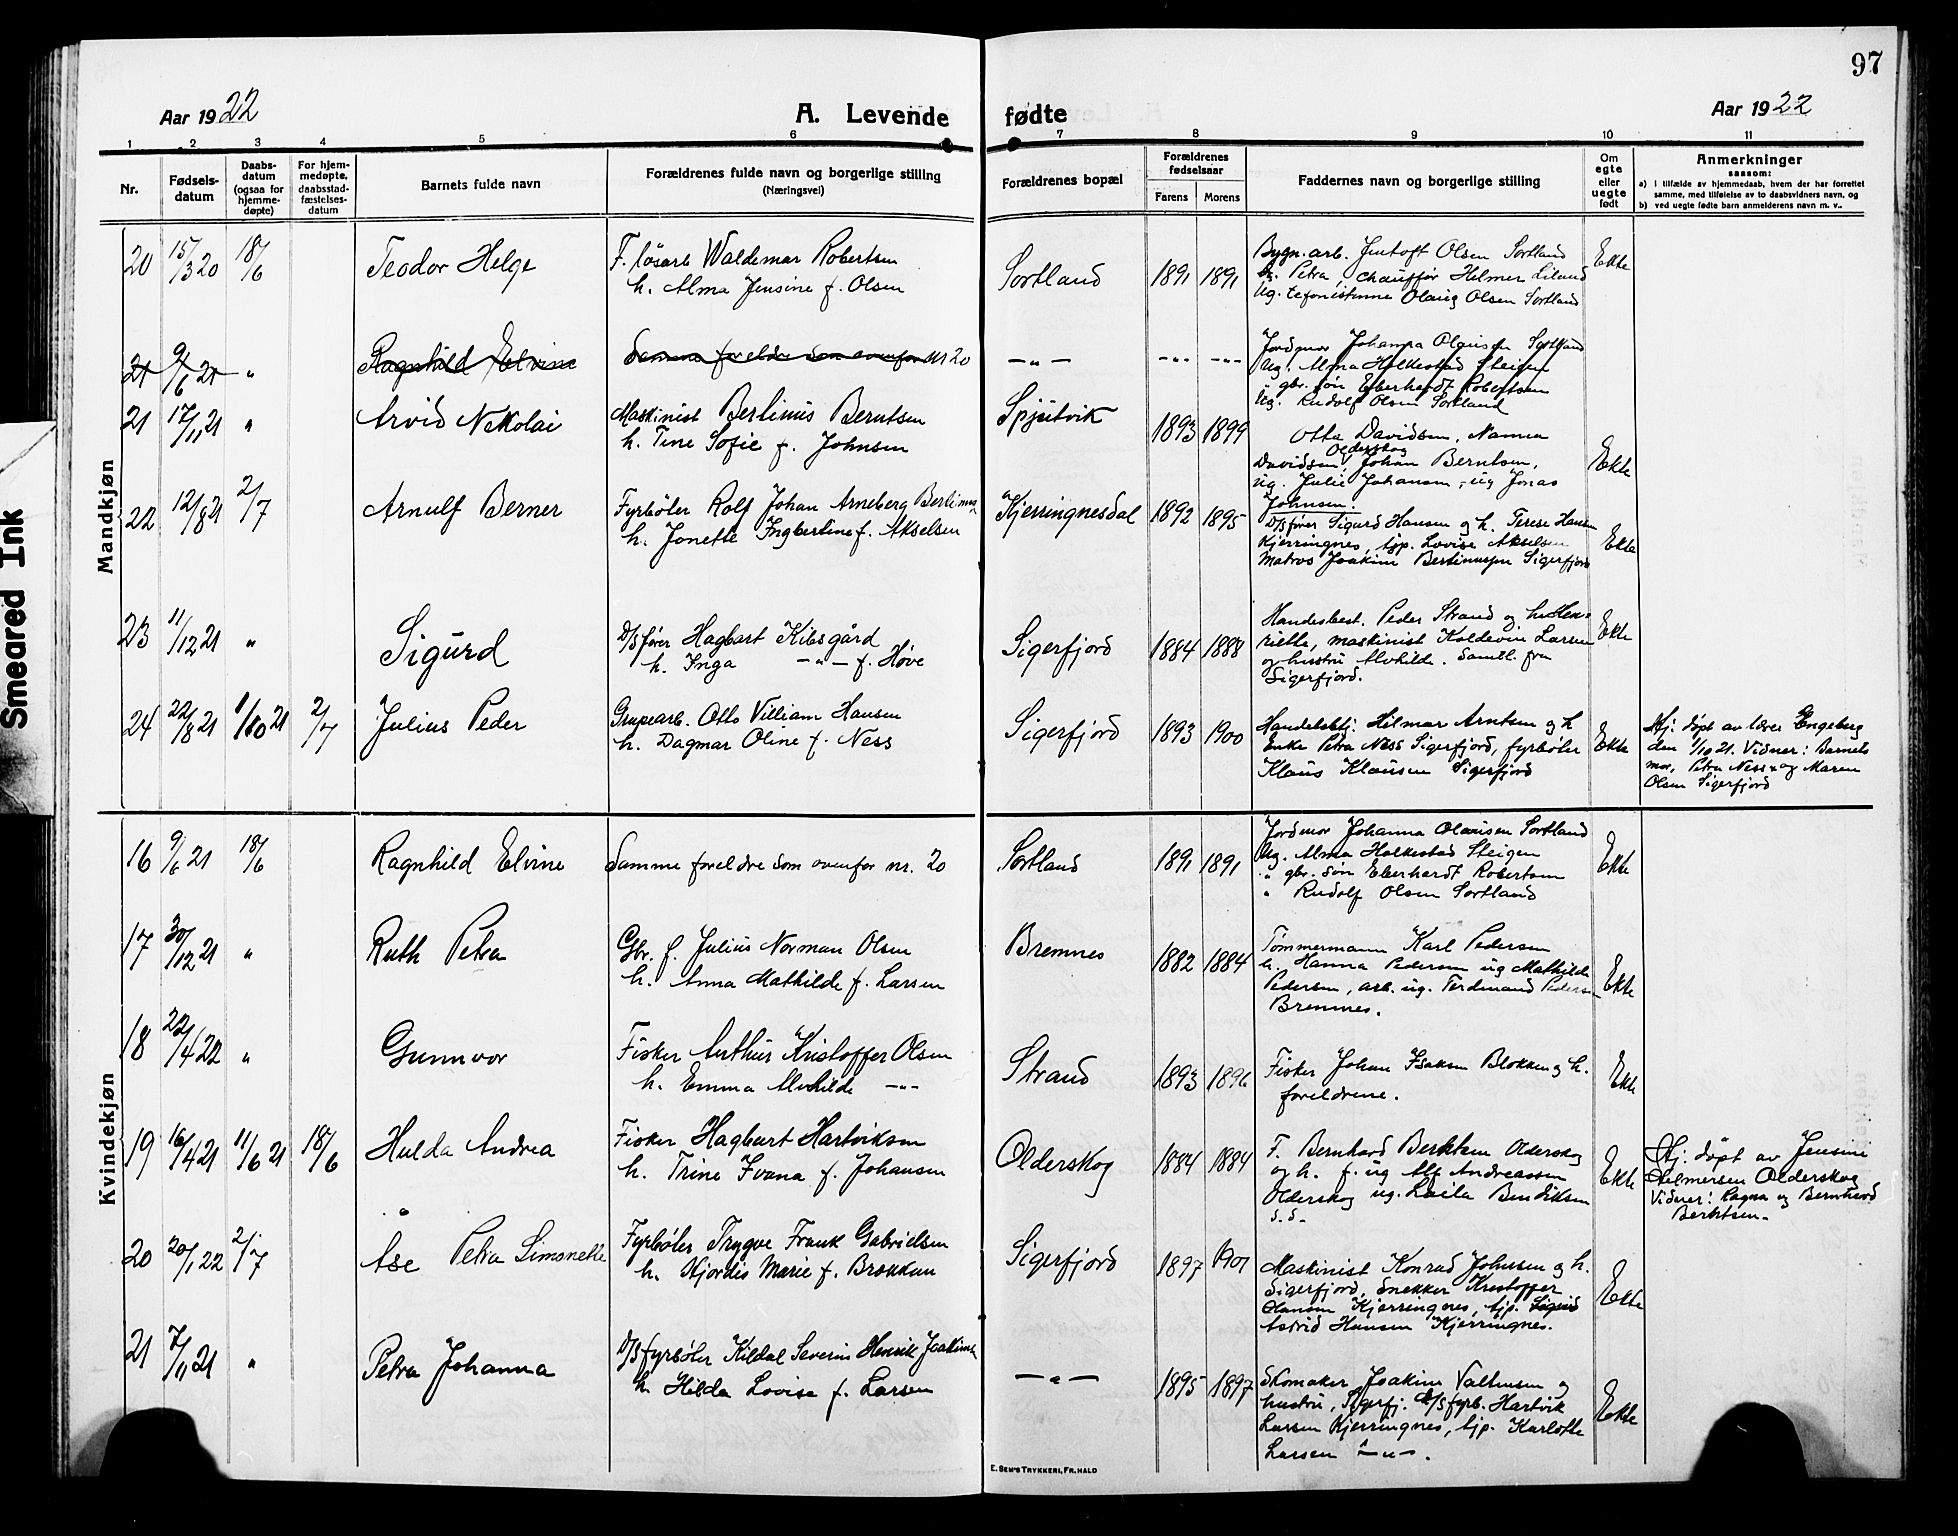 97
Aar 1922
A. Levende fødte
Aar 1922
1 2 3 4 5 6 7 8 9 10 11
Nr.
Fødsels-
datum
Daabs-
datum
(ogsaa for
hjemme-
døpte)
For hjem-
medøpte,
daabsstad-
fæstelses-
datum
Barnets fulde navn
Forældrenes fulde navn og borgerlige stilling
(Næringsvei)
Forældrenes bopæl
Forældrenes
fødselsaar
Farens Morens
Faddernes navn og borgerlige stilling
Om
egte
eller
uegte
født
Anmerkninger
saasom:
a) i tilfælde av hjemmedaab, hvem der har forrettet
samme, med tilføielse av to daabsvidners navn, og
b) ved uegte fødte barn anmelderens navn m. v..
Mandkjøn
20 15/3 20 18/6 Teodor Helge
F. løsarb Waldemar Robertsen
h. Alma Jensine f. Olsen
Sortland 1891 1891
Bygn. arb. Jentoft Olsen Sortland
h. Petra, chauffør Helmer Liland
Ug. Olaug Olsen Sortland
Ekte
21 9/6 21 " Ragnhild Elvine
Samme foreldre som ovenfor nr 20
— " — -"- -"-
Jordmor Johanna Olausen Sortland
Ug. Alma Holkestad Steigen
" gbr. søn Eberhardt Robertsen
Ug. Rudolf Olsen Sortland
21 17/11 21 " Arvid Nikolai
Maskinist Bertinus Berntsen
h. Tine Sofie f. Johnsen
Spjutvik 1893 1899
Otto Davidsen, Nanna
Olderskog
Davidsen, Johan Berntsen,
ug. Julie Johansen, ug Jonas
Johnsen.
Ekte
22 12/8 21 2/7 Arnulf Berner
Fyrbøter Rolf Johan Arneberg Bertinus
h. Jonette Ingbertine f. Akselsen
Kjerringnesdal 1892 1895
D/S fører Sigurd Hansen og h. Terese Hansen
Kjerringnes, tjp. Lovise Akselsen
Matros Joakim Bertinussen Sigerfjord
Ekte
23 11/12 21 " Sigurd
D/S fører Hagbart Kibsgård
h. Inga — " — f. Høve
Sigerfjord 1884 1888
Handelsbest. Peder Strand og h. Hen-
riette, maskinist Koldevin Larsen
og hustru Alvhilde. Samtl. fra
Sigerfjord.
Ekte
24 22/8 21 1/10 21 2/7 Julius Peder
Grupearb. Otto Villiam Hansen
h. Dagmar Oline f. Ness
Sigerfjord 1893 1900
Handelsbtj. Hilmar Arntsen og h
Enke Petra Ness Sigerfjord, fyrbøter
Klaus Klausen Sigerfjord
Ekte
Hj. døpt av lærer Engeberg
den 1/10 21. Vidner: Barnets
mor, Petra Ness og Maren
Olsen Sigerfjord
Kvindekjøn
16 9/6 21 18/6 Ragnhild Elvine
Samme foreldre som ovenfor nr. 20
Sortland 1891 1891
Jordmor Johanna Olausen Sortland
Ug. Alma Holkestad Steigen
" gbr. søn Eberhardt Robertsen
" Rudolf Olsen Sortland
Ekte
17 30/12 21 " Ruth Petra
Gbr. f. Julius Norman Olsen
h. Anna Mathilde f. Larsen
Bremnes 1882 1884
Tømmermann Karl Pedersen
h. Hanna Pedersen ug Mathilde
Pedersen, arb. ug. Ferdinand Pedersen
Bremnes.
Ekte
18 22/4 22 " Gunnvor
Fisker Arthur Kristoffer Olsen
h. Emma Alvhilde -"-
Strand 1893 1896
Fisker Johan Isaksen Blokken og h.
foreldrene.
Ekte
19 16/4 21 11/6 21 18/6 Hulda Andrea
Fisker Hagbart Hartviksen
h. Trine Ivana f. Johansen
Olderskog 1884 1884
F. Bernhard Berntsen Olderskog
og h. f. ug Alf Andreassen
Olderskog ug. Laila Bendiksen
s. s.
Ekte
Hj. døpt av Jensine
Helmersen Olderskog
Vidner: Ragna og Bernhard
Berntsen.
20 20/1 22 2/7 Åse Petra Simonette
Fyrbøter Trygve Frank Gabrielsen
h. Hjordis Marie f. Brokkan
Sigerfjord 1897 1901
Maskinist Konrad Johnsen og h.
Sigerfjord, snekker Kristoffer
Hansen Kjerringnes, tjp. Sigrid
Astrid Hansen Kjerringnes.
Ekte
21 7/11 21 " Petra Johanna
D/S fyrbøter Kildal Severin Henrik Joakimsen
h. Hilda Lovise f. Larsen
— " — 1895 1897
Skomaker Joakim Valtinsen og
hustru, Sigerfj. D/S fyrb. Hartvik
Larsen Kjerringnes, tjp. Karlotte
Larsen — " —.
Ekte
E. SEM'S TRYKKERI, FR. HALD
Smeared Ink